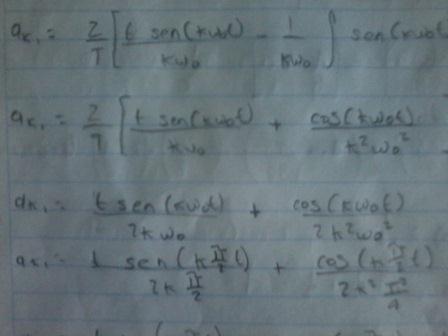 aₖ₁ = 2/T [ t sen(kω₀t)/kω₀ - 1/kω₀ ∫ sen(kω₀t
aₖ₁ = 2/T [ t sen(kω₀t)/kω₀ + cos(kω₀t)/k²ω₀²
aₖ₁ = t sen(kω₀t)/2kω₀ + cos(kω₀t)/2k²ω₀²
aₖ₁ = t sen(k π/2 t)/2k π/2 + cos(k π/2 t)/2k² π²/4